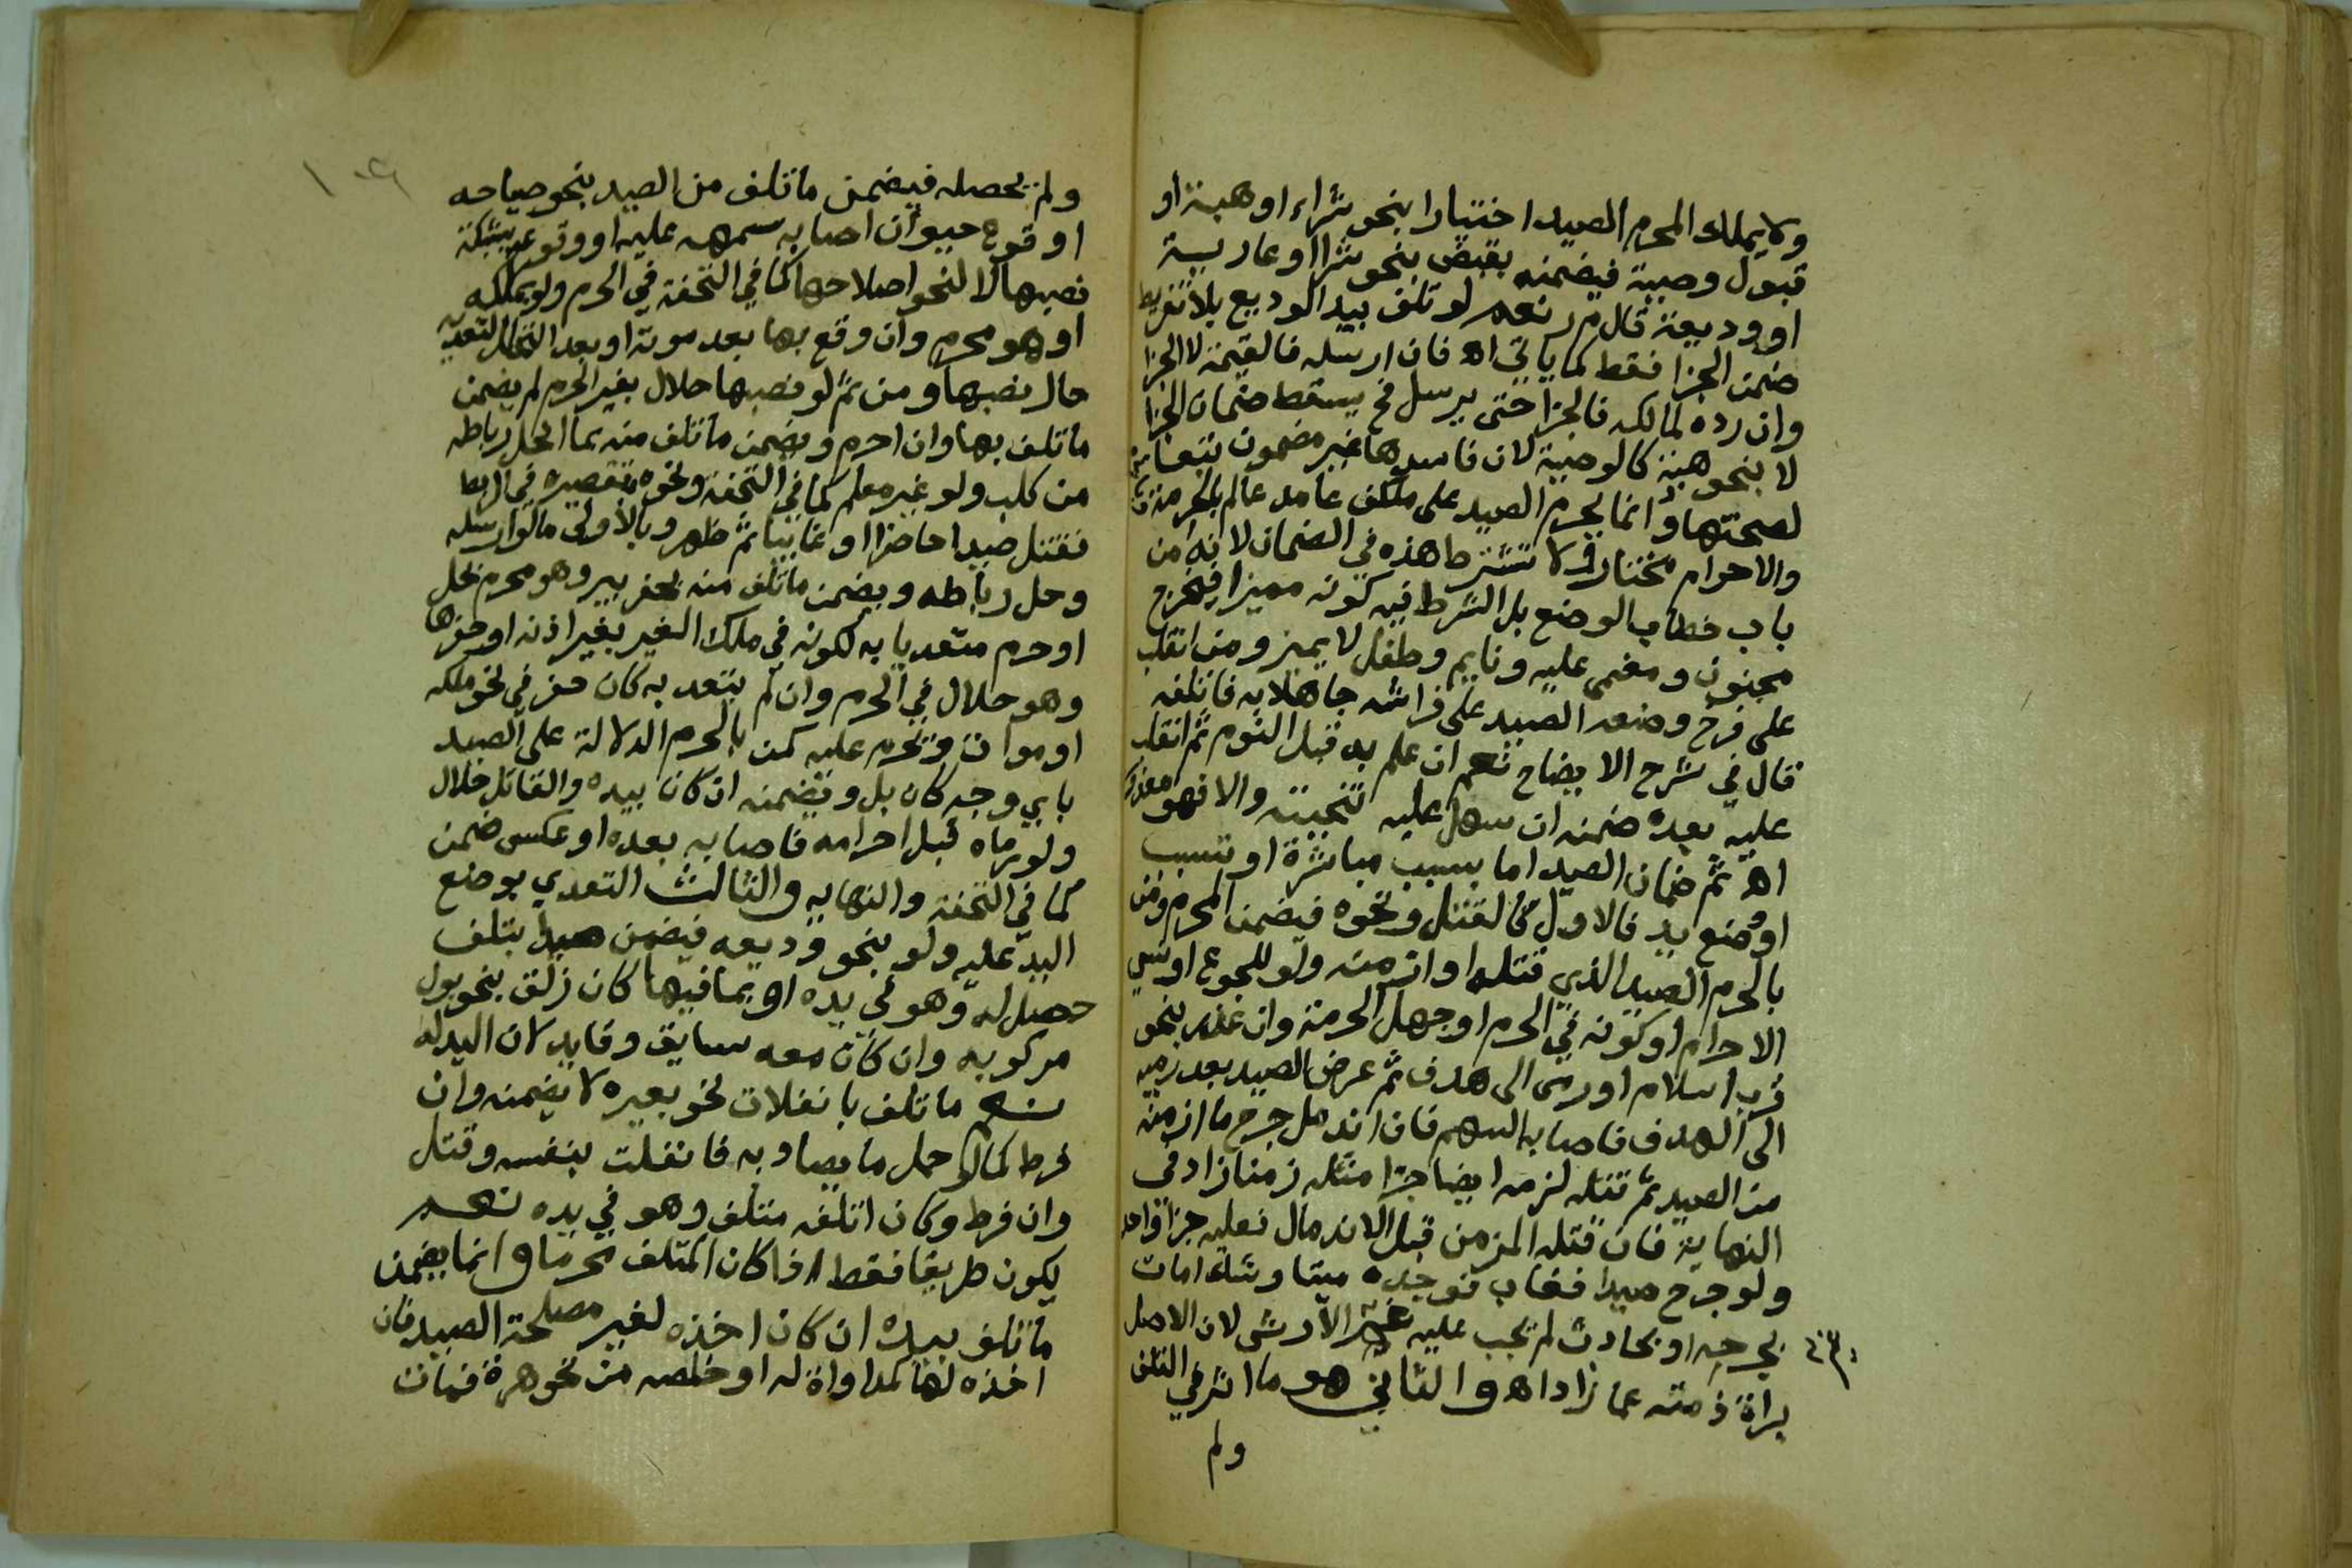 ولا يملك المحرم الصيد اختيارا بنحو شراء او هبة او
قبول وصية فيضمنه بقبض بنحو شرا او عارية
او وديعة قال م ر نعم لو تلف بيد الوديع بلا تفريط
ضمن الجزا فقط كما ياتي اه فان ارسله فالقيمة لا الجزا
وان رده لمالكه فالجزا حتى يرسل فح يسقط ضمان الجزا
لا بنحو هبة كالوصية لان فاسدها غير مضمون تبعا
لصحتها وانما يحرم الصيد على مكلف عامد عالم بالحرمة
والاحرام مختار ولا تشترط هذه في الضمان لانه من
باب خطاب الوضع بل الشرط فيه كونه مميزا فيخرج
مجنون ومغمى عليه ونايم وطفل لا يميز ومن انقلب
على فرخ وضعه الصيد على فراشه جاهلا به فاتلفه
قال في شرح الايضاح نعم ان علم به قبل النوم ثم انقلب
عليه بعده ضمنه ان سهل عليه تنحيته والا فهو معذور
اه ثم ضمان الصيد اما بسبب مباشرة او تسبب
او وضع يد فالاول كالقتل ونحوه فيضمن المحرم ومن
بالحرم الصيد الذي قتله او ازمنه ولو للجوع او نسي
الاحرام او كونه في الحرم او جهل الحرمة وان عذر بنحو
قرب اسلام او رمى الى هدف ثم عرض الصيد بعد رميه
الى الهدف فاصابه السهم فان اندمل جرح ما ازمنه
من الصيد ثم قتله لزمه ايضا جزا مثله زمنا زاد في
النهاية فان قتله المزمن قبل الاندمال فعليه جزا واحد
ولو جرح صيدا فغاب فوجده ميتا وشك امات
بجرحه او بحادث لم يجب عليه غير الارش لان الاصل
براة ذمته عما زاد اه والثاني هو ما اثر في التلف
ولم
ولم يحصله فيضمن ما تلف من الصيد بنحو صياحه
او وقوع حيوان اصابه سهمه عليه او وقوعه بشبكة
نصبها لا لنحو اصلاحها كما في التحفة في الحرم ولو بملكه
او وهو محرم وان وقع بها بعد موته او بعد التحلل لتعديه
حال نصبها ومن ثم لو نصبها حلال بغير الحرم لم يضمن
ما تلف بها وان احرم ويضمن ما تلف منه بما انحل رباطه
من كلب ولو غير معلم كما في التحفة ونحوه بتقصيره في الربط
فقتل صيدا حاضرا او غايبا ثم ظهر وبالاولى ما لو ارسله
وحل رباطه ويضمن ما تلف منه بحفر بير وهو محرم بحل
او حرم متعديا به لكونه في ملك الغير بغير اذنه او حفرها
وهو حلال في الحرم وان لم يتعد به كان حفر في نحو ملكه
او موات وتحرم عليه كمن بالحرم الدلالة على الصيد
باي وجه كان بل ويضمنه ان كان بيده والقاتل حلال
ولو رماه قبل احرامه فاصابه بعده او عكس ضمن
كما في التحفة والنهاية والثالث التعدي بوضع
اليد عليه ولو بنحو وديعه فيضمن صيدا بتلف
حصل له وهو في يده او بما فيها كان زلق بنحو بول
مركوبه وان كان معه سايق وقايد لان اليد له
نعم ما تلف بانفلات نحو بعيره لا يضمنه وان
فرط كما لو حمل ما يصاد به فانفلت بنفسه وقتل
وان فرط وكان اتلفه متلف وهو في يده نعم
يكون طريقا فقط اذا كان المتلف محرما وانما يضمن
ما تلف بيده ان كان اخذه لغير مصلحة الصيد فان
اخذه لها كمداواة له او خلصه من نحو هرة فمات